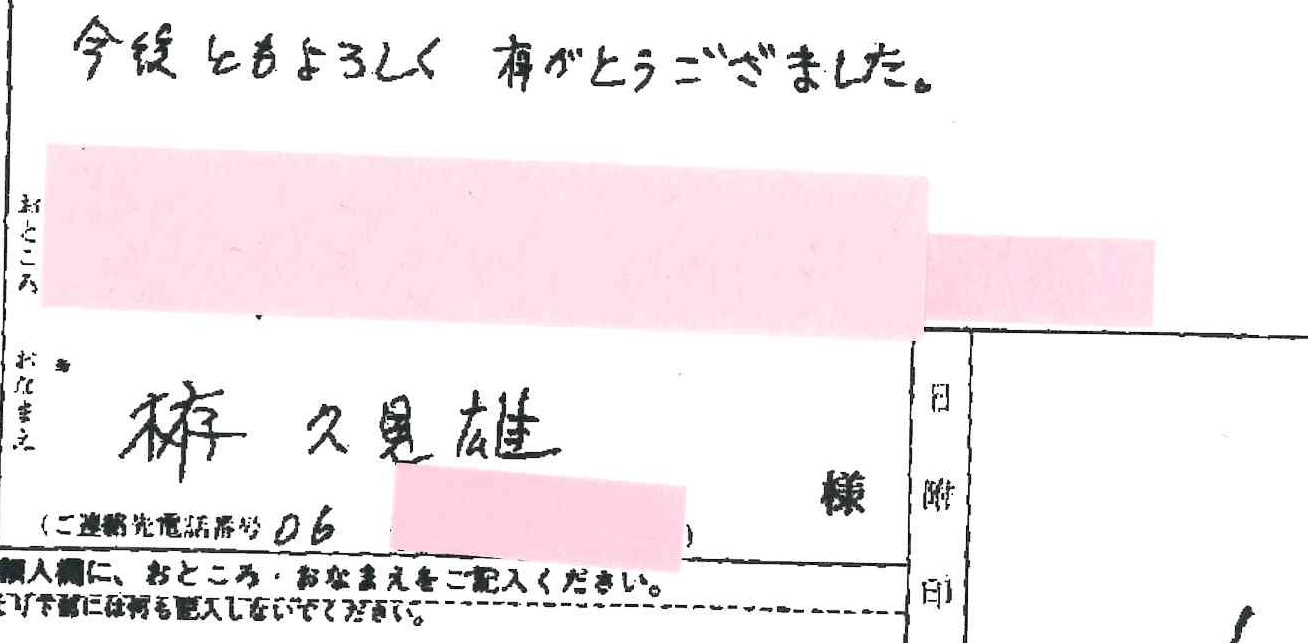 今後ともよろしく 有がとうございました。
おところ
おなまえ
久見雄
様
(ご連絡先電話番号 06 )
日附印
欄に、おところ・おなまえをご記入ください。
下部には何も記入しないでください。